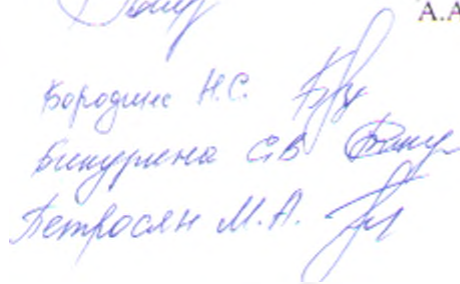 А.А
Бородина Н.С.
Бикурина С.В
Петросян М.А.